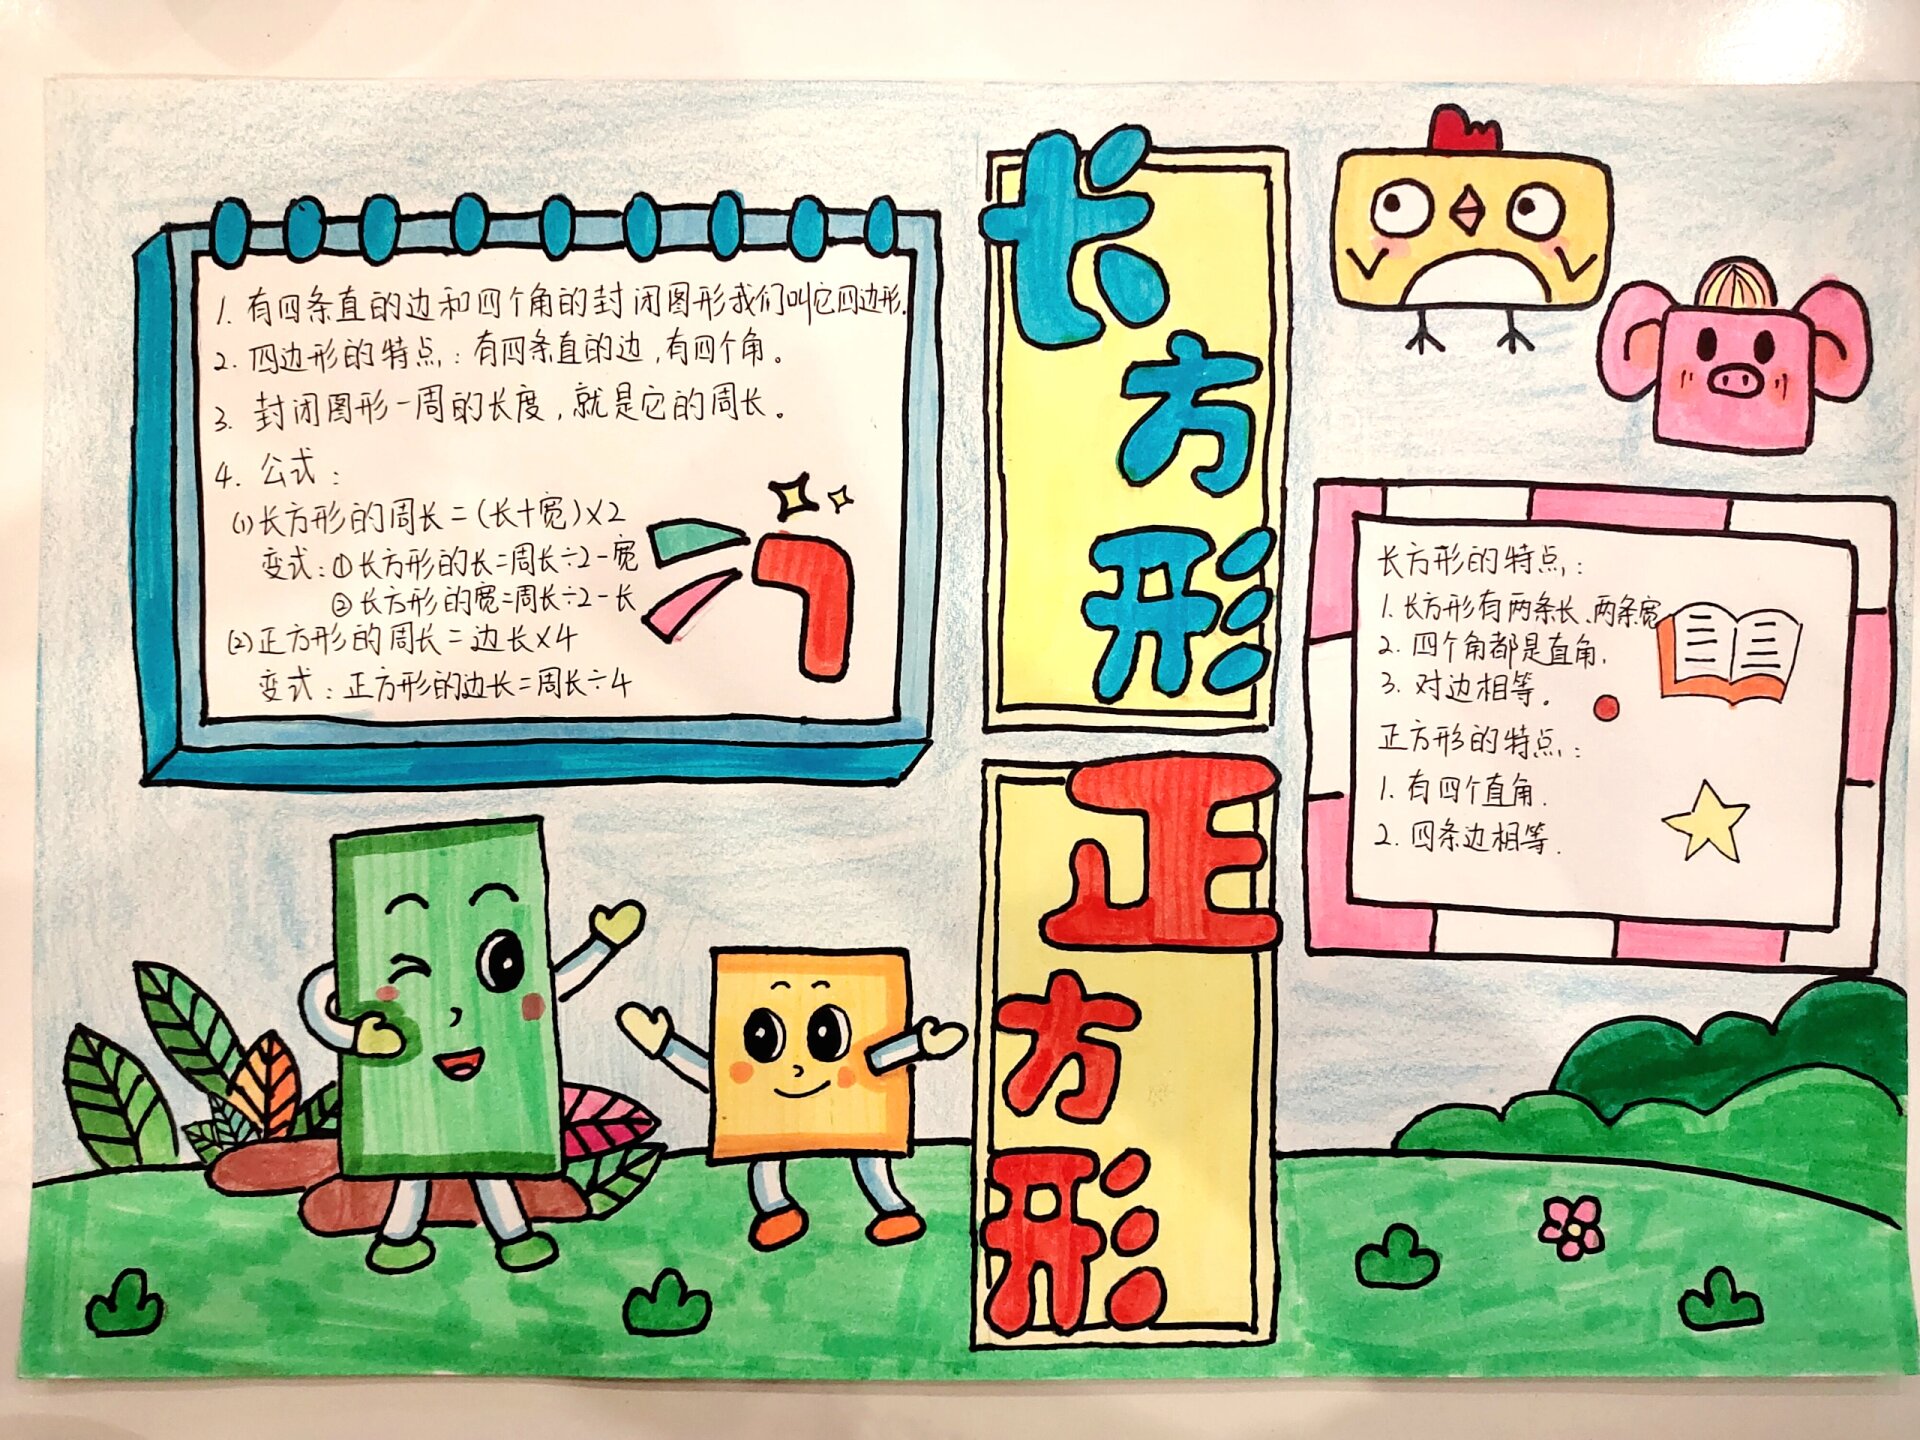 1. 有四条直的边和四个角的封闭图形我们叫它四边形.
2. 四边形的特点:有四条直的边,有四个角。
3. 封闭图形一周的长度,就是它的周长。
4. 公式:
(1)长方形的周长=(长+宽)×2
变式:①长方形的长=周长÷2-宽
②长方形的宽=周长÷2-长
(2)正方形的周长=边长×4
变式:正方形的边长=周长÷4
长方形
正方形
长方形的特点:
1. 长方形有两条长、两条宽
2. 四个角都是直角.
3. 对边相等。
正方形的特点:
1. 有四个直角.
2. 四条边相等.